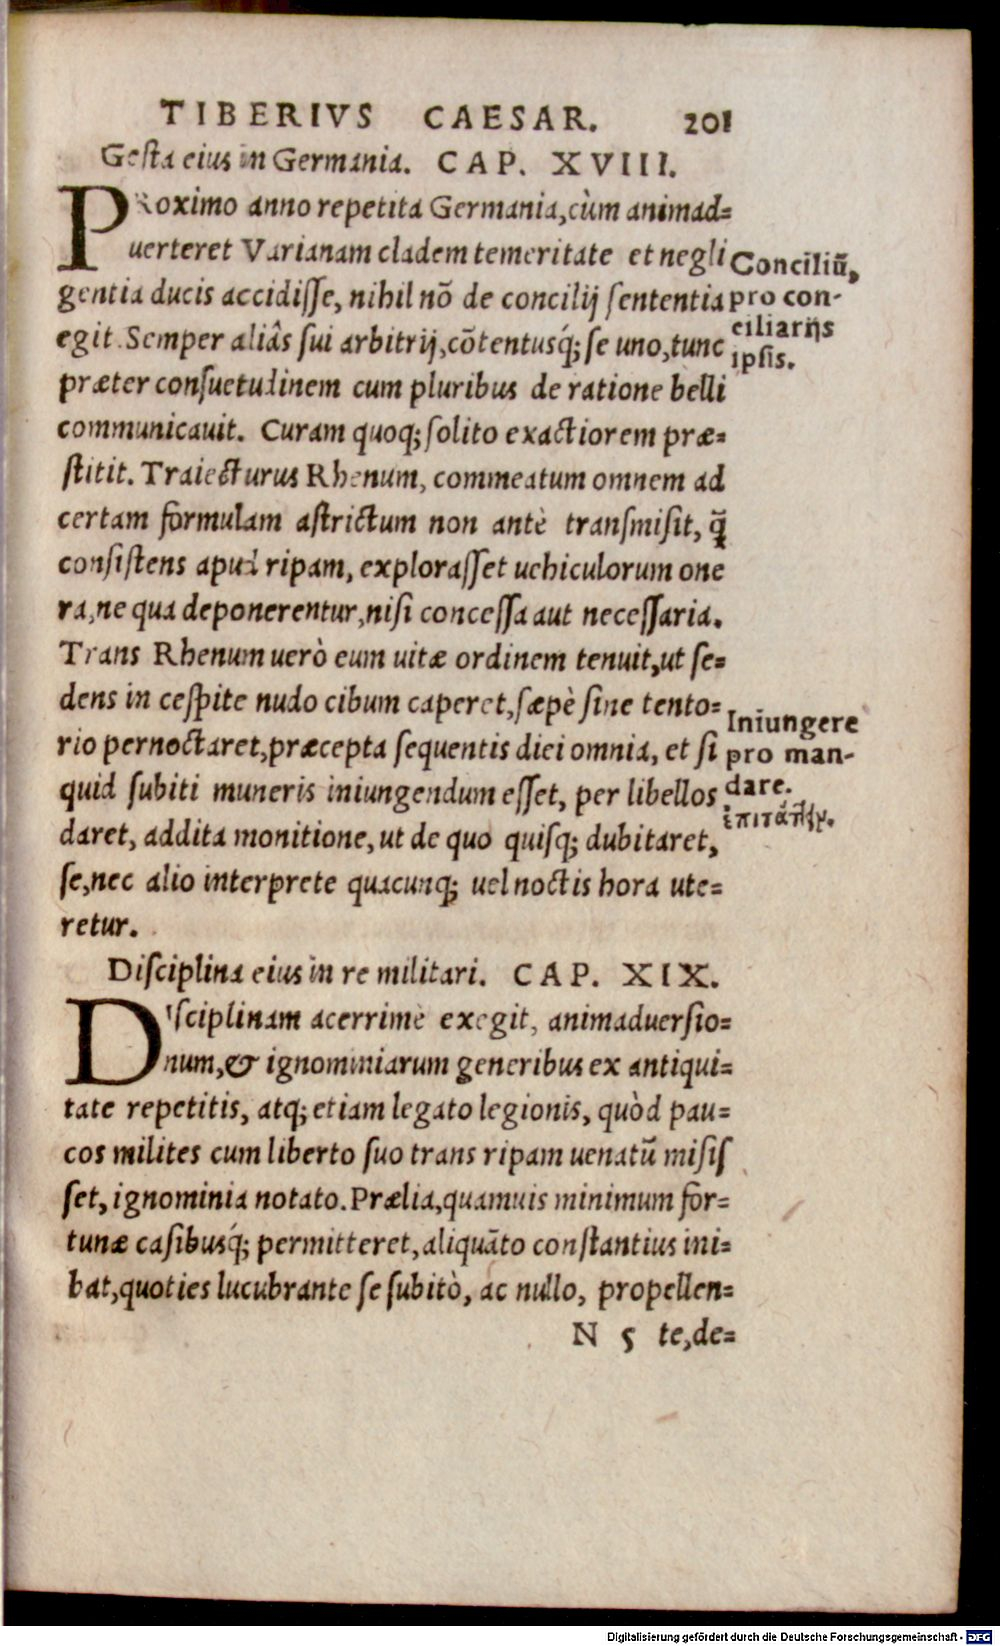 TIBERIVS CAESAR. 201
Gesta eius in Germania. CAP. XVIII.
PRoximo anno repetita Germania, cùm animad=
uerteret Varianam cladem temeritate et negli
gentia ducis accidisse, nihil nõ de concilij sententia
egit. Semper aliâs sui arbitrij, cõtentusq́; se uno, tunc
præter consuetudinem cum pluribus de ratione belli
communicauit. Curam quoq; solito exactiorem præ=
stitit. Traiecturus Rhenum, commeatum omnem ad
certam formulam astrictum non antè transmisit, q̃
consistens apud ripam, explorasset uehiculorum one
ra, ne qua deponerentur, nisi concessa aut necessaria.
Trans Rhenum uerò eum uitæ ordinem tenuit, ut se=
dens in cespite nudo cibum caperet, sæpè sine tento=
rio pernoctaret, præcepta sequentis diei omnia, et si
quid subiti muneris iniungendum esset, per libellos
daret, addita monitione, ut de quo quisq; dubitaret,
se, nec alio interprete quacunq; uel noctis hora ute=
retur.
Conciliũ,
pro con-
ciliarijs
ipsis.
Iniungere
pro man-
dare.
Disciplina eius in re militari. CAP. XIX.
DIsciplinam acerrimè exegit, animaduersio=
num, & ignominiarum generibus ex antiqui=
tate repetitis, atq; etiam legato legionis, quòd pau=
cos milites cum liberto suo trans ripam uenatũ misis
set, ignominia notato. Prælia, quamuis minimum for=
tunæ casibusq́; permitteret, aliquãto constantius ini=
bat, quoties lucubrante se subitò, ac nullo, propellen=
N 5 te, de=
Digitalisierung gefördert durch die Deutsche Forschungsgemeinschaft - DFG